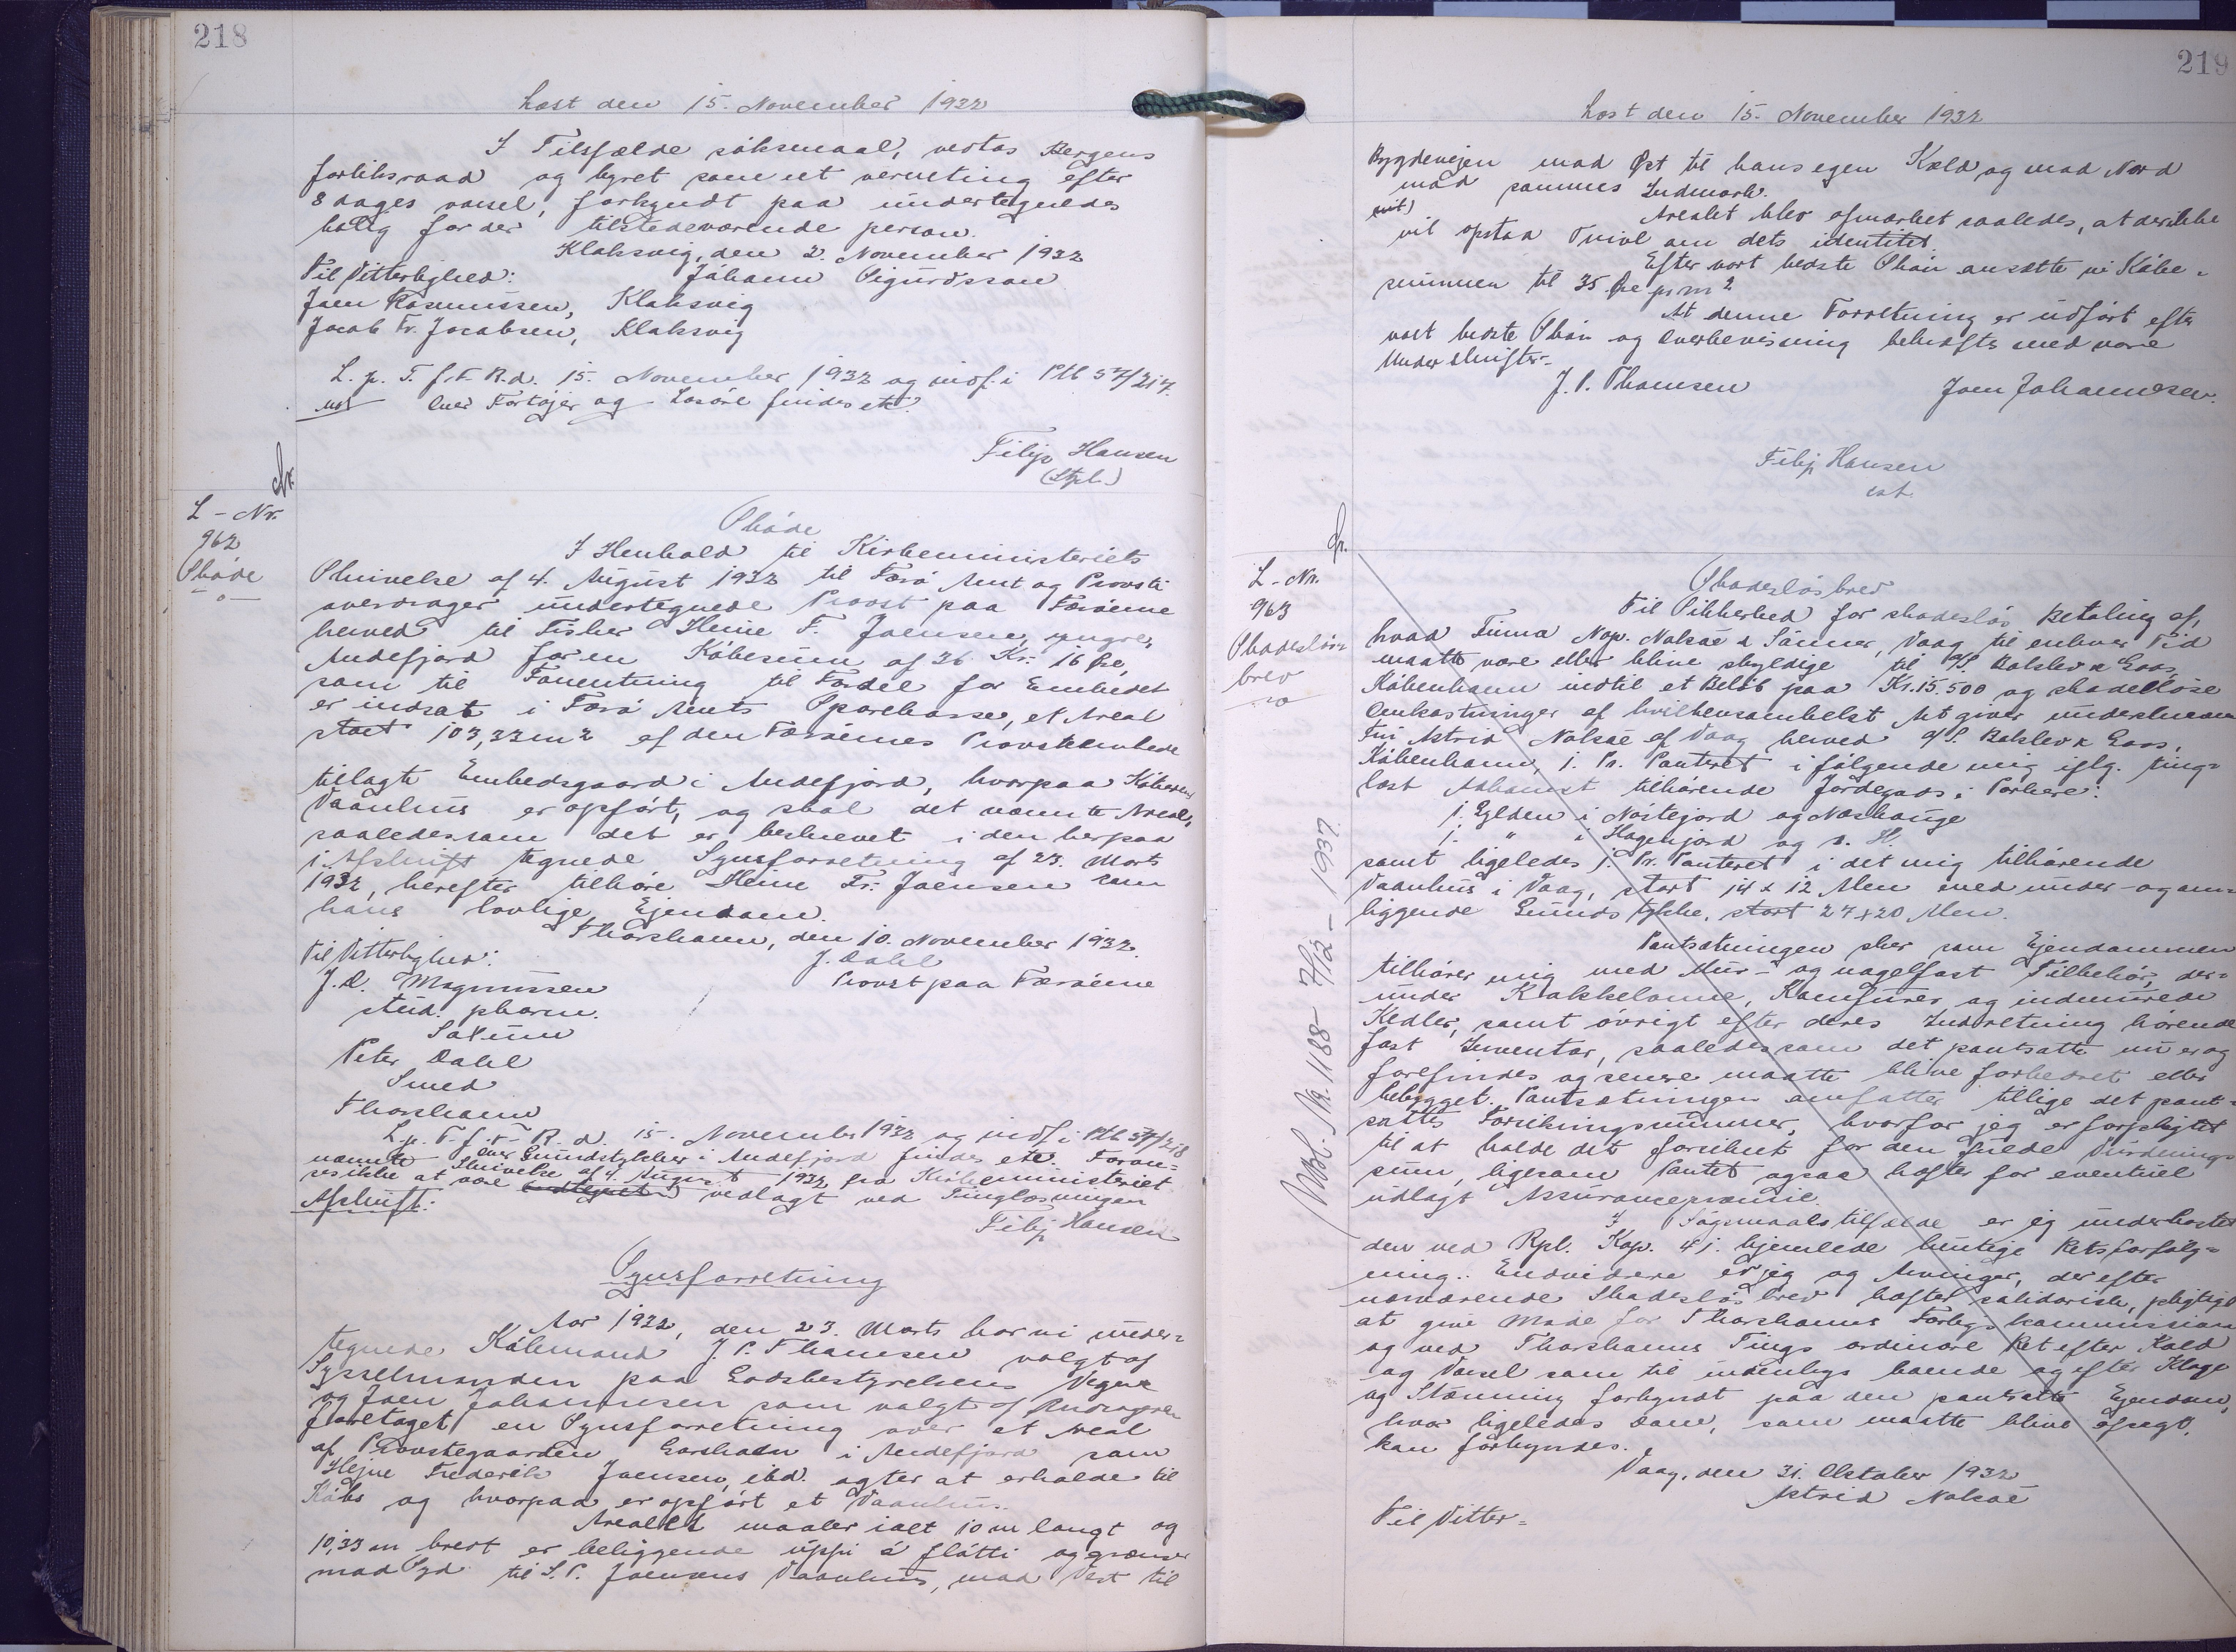 218
Læst den 15. November 1932
I Tilfælde søksmaal, vedtas Bergens
forliksraad og byret som ret verneting efter
8 dages varsel, forkyndt paa undertegnedes
bolig for der tilstedeværende person.
Klaksvig, den 2. November 1932
Til Vitterlighed: Jóhann Sigurdsson
Joen Rasmussen, Klaksvig
Jacob Fr. Jacobsen, Klaksvig
L. p. T. f. F. R. d. 15. November 1932 og indf. i Ptb 57/217.
Over Fartøjer og Løsøre findes etc.
Filip Hansen
(Stpl.)
L-Nr.
962
Skøde
Skøde
I Henhold til Kirkeministeriets
Skrivelse af 4. August 1932 til Færø Amt og Provsti
overdrager undertegnede Provst paa Færøerne
herved til Fisker Heine F. Joensen, yngre,
Andefjord for en Købesum af 36 Kr. 16 Øre,
som til Forrentning til Fordel for Embedet
er indsat i Færø Amts Sparekasse, et Areal
stort 103,33 m2 af den Færøernes Provsteembede
tillagte Embedsgaard i Andefjord, hvorpaa Køberens
Vaanhus er opført, og skal det nævnte Areal,
saaledes som det er beskrevet i den herpaa
i Afskrift tegnede Synsforretning af 23. Marts
1932, herefter tilhøre Heine Fr. Joensen som
hans lovlige Ejendom.
Thorshavn, den 10. November 1932.
Til Vitterlighed: J. Dahl
J. D. Magnussen Provst paa Færøerne
stud. pharm.
Saltum
Peter Dahl
Smed
Thorshavn
L. p. T. f. F. R. d. 15. November 1932 og indf. i Ptb 57/218
Over Grundstykker i Andefjord findes etc. Foran-
nævnte Skrivelse af 4. August 1932 fra Kirkeministeriet
ses ikke at være vedlagt ved Tinglæsningen
Filip Hansen
Afskrift:
Synsforretning
Aar 1932, den 23. Marts har vi under-
tegnede Købmand J. P. Thomsen valgt af
Sysselmanden paa Godsbestyrelsens Vegne
og Joen Johannesen som valgt af Andrageren
foretaget en Synsforretning over et Areal
af Provstegaarden i Andefjord som
Hejne Frederik Joensen, ibd. agter at erholde til
Købs og hvorpaa er opført et Vaanhus.
Arealet maaler ialt 10 m langt og
10,33 m bredt er beliggende uppi á fløtti og grænser
mod Syd til S. P. Joensens Vaanhus, mod Vest til
219
Læst den 15. November 1932
Bygdevejen mod Øst til hans egen Kæld og mod Nord
mod sammes Indmark.
Arealet blev afmærket saaledes, at der ikke
vil opstaa Tvivl om dets identitet.
Efter vort bedste Skøn ansætte vi Købe-
summen til 35 Øre pr m2
At denne Forretning er udført efter
vort bedste Skøn og Overbevisning bekræftes med vore
Underskrifter.
J. P. Thomsen Joen Johannesen.
Filip Hansen
cst.
L-Nr.
963
Skadesløs-
brev
Skadesløsbrev
Til Sikkerhed for skadesløs Betaling af,
hvad Firma Nap. Nolsøe & Sönner, Vaag til enhver Tid
maatte være eller blive skyldige til A/S. Balslev & Goos,
København indtil et Beløb paa Kr. 15.500 og skadesløse
Omkostninger af hvilkensomhelst Art giver underskreven
Fru Astrid Nolsøe af Vaag herved A/S. Balslev & Goos,
København, 1. Pr. Panteret i følgende mig iflg. ting-
læst Adkomst tilhørende Jordegods i Porkere:
1 Gylden i Nøstejord og Næshauge
1 " i Hagehjord og s. H.
samt ligeledes 1. Pr. Panteret i det mig tilhørende
Vaanhus i Vaag, stort 14 x 12 Alen med under- og om-
liggende Grundstykke, stort 27 x 20 Alen.
Pantsætningen sker som Ejendommen
tilhører mig med Mur- og nagelfast Tilbehør, der-
under Kakkelovne, Komfurer og indmurede
Kedler, samt øvrigt efter deres Indretning hørende
fast Inventar, saaledes som det pantsatte nu er og
forefindes og senere maatte blive forbedret eller
bebygget. Pantsætningen omfatter tillige det pant-
satte Forsikringssummer, hvorfor jeg er forpligtet
til at holde det forsikret for den fulde Vurderings-
sum, ligesom Pantet ogsaa hæfter for eventuel
udlagt Assurancepræmie.
I Søgsmaalstilfælde er jeg underkastet
den ved Rpl. Kap. 41. hjemlede hurtige Retsforfølg-
ning. Endvidere er jeg og Arvinger, der efter
nærværende Skadesløsbrev hæfter solidarisk, pligtige
at give Møde for Thorshavns Forligskommission
og ved Thorshavns Tings ordinære Ret efter Kald
og Varsel som til indenbygs boende og efter Klage
og Stævning forkyndt paa den pantsatte Ejendom,
hvor ligeledes Dom, som maatte blive afsagt,
kan forkyndes.
Vaag, den 31. Oktober 1932
Astrid Nolsøe
Til Vitter-
Udsl. Nr. 1188 - 7/12 - 1937.